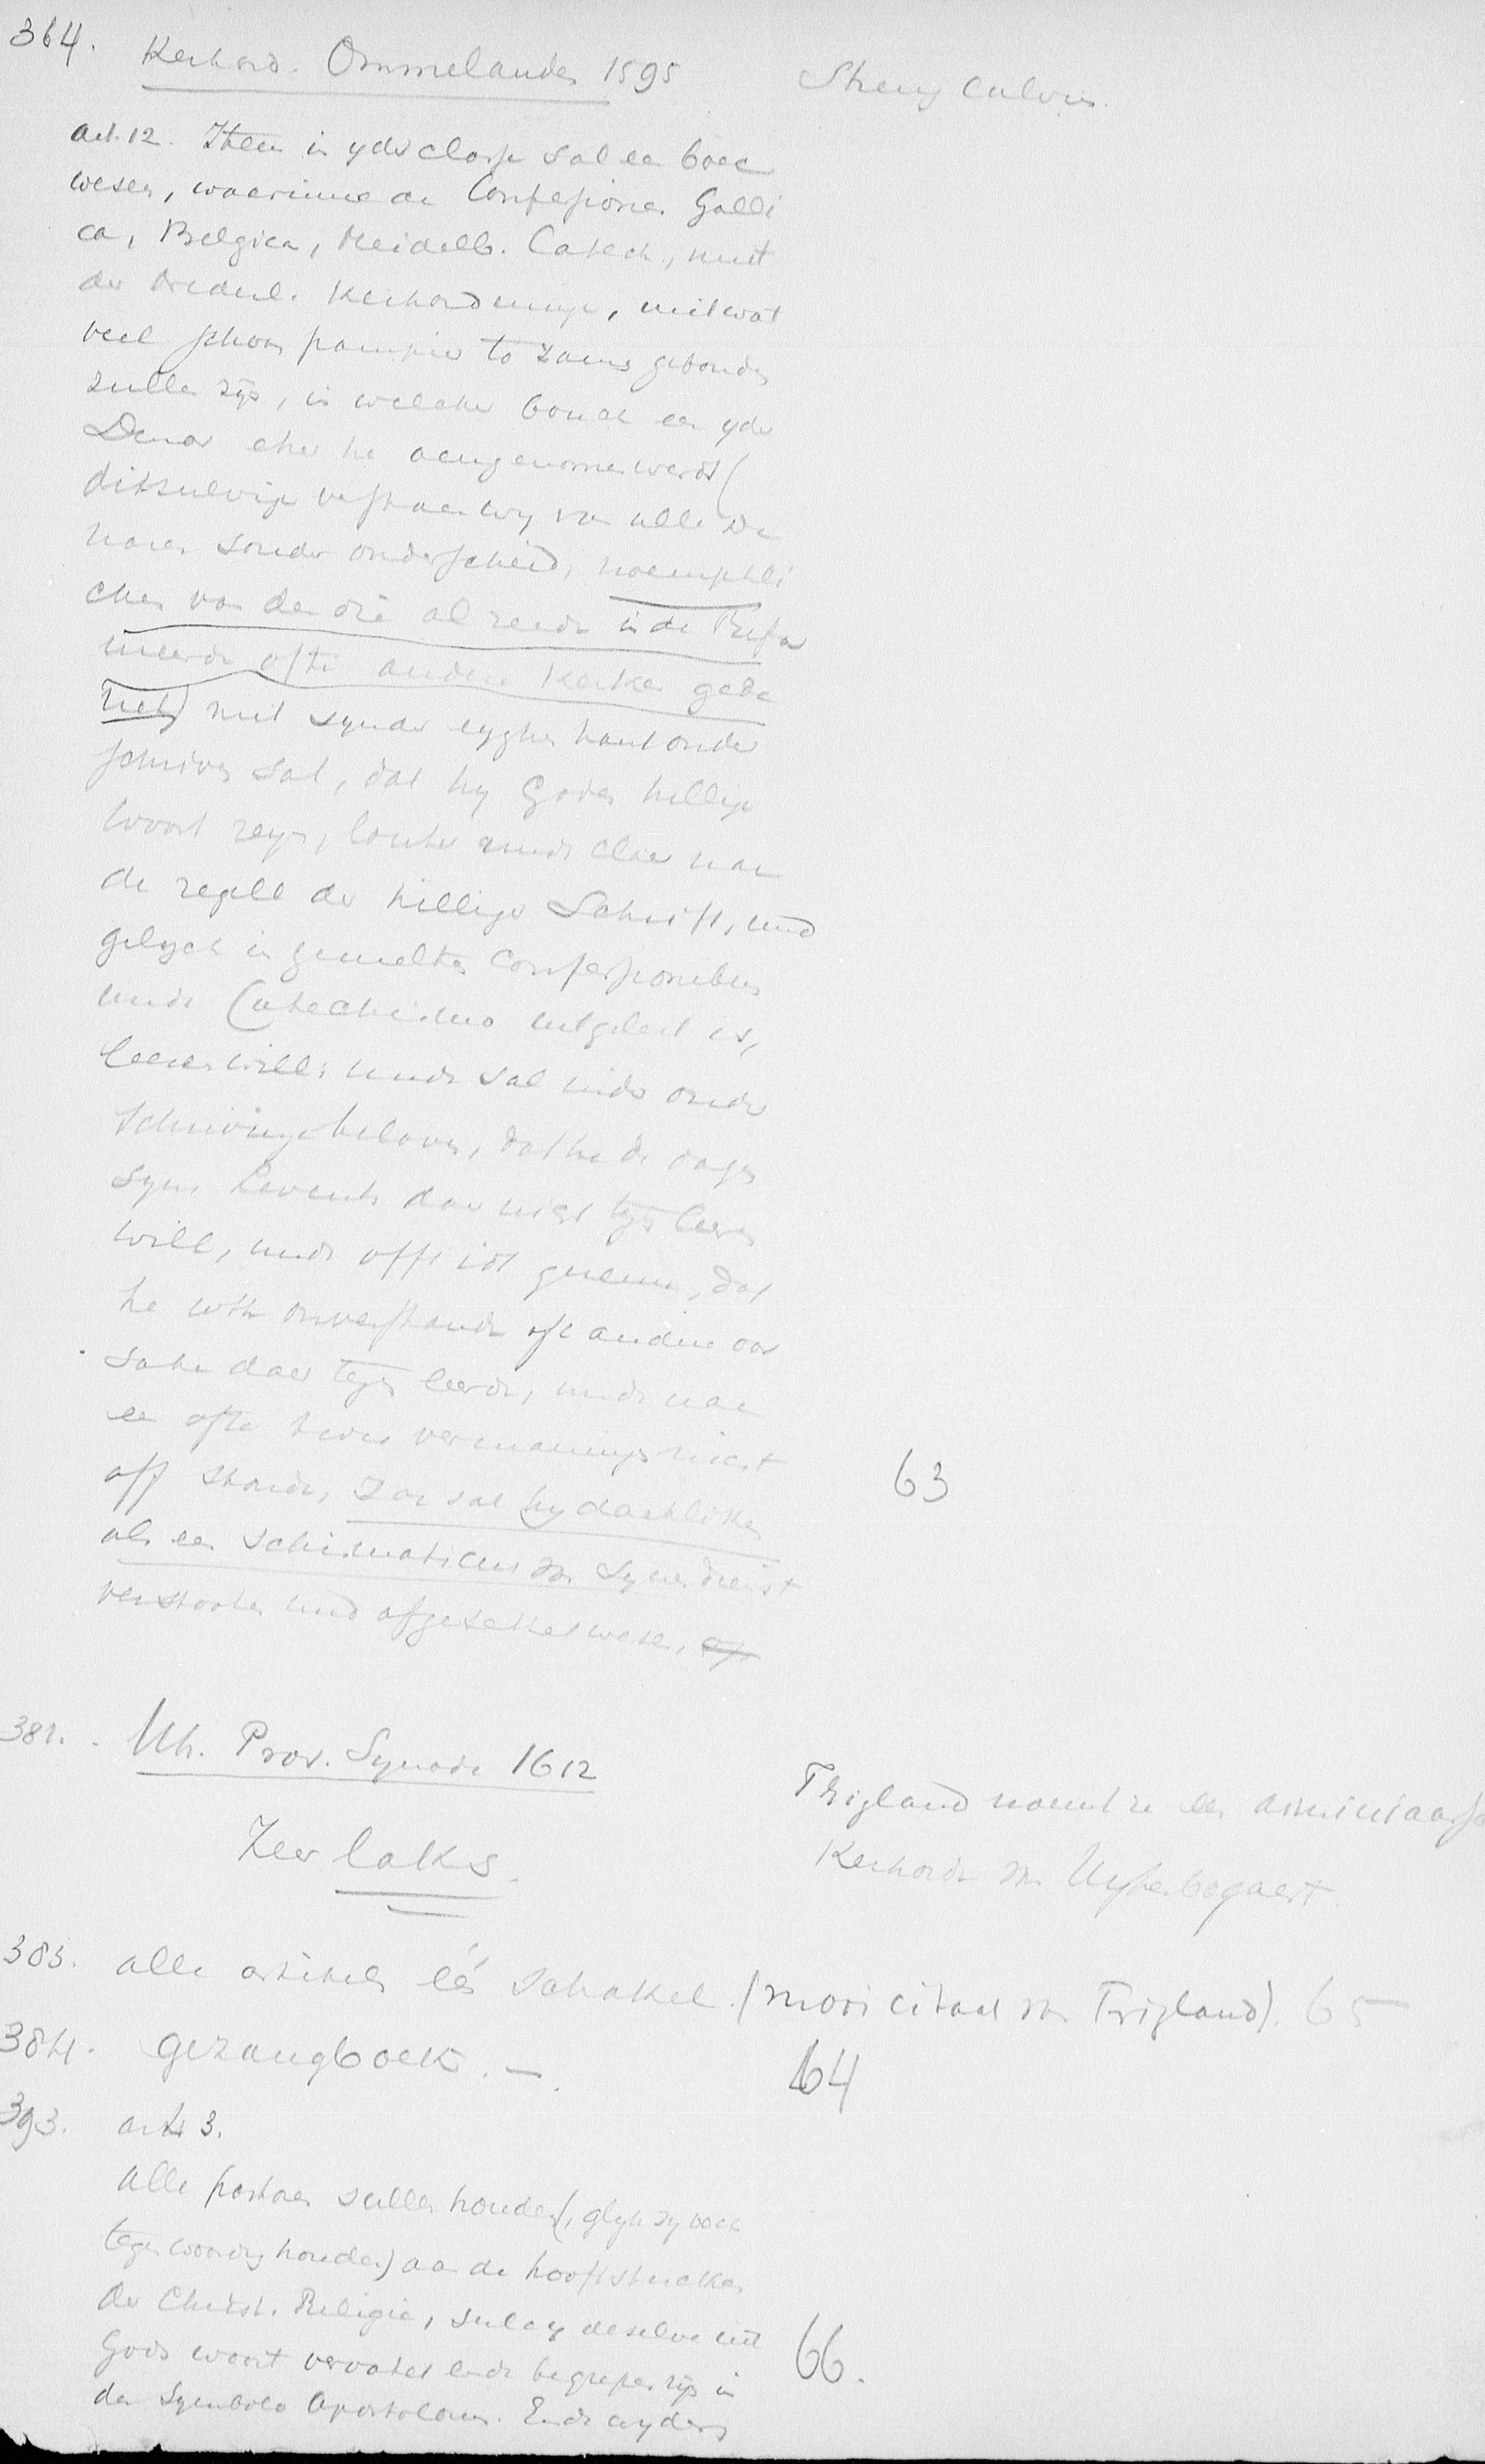 364. Kerkord. Ommelanden 1595 Streng Calvin.
art. 12. Item in yder classe sal een boec
wesen, waerinne de Confessiones Galli
ca, Belgica, Heidelb. Catech., mit
der Nederl. Kerkordeninge, mit wat
veel schoon pampier to zamen gebonden
zullen zijn, in welcken bouck een yder
Dener eher he aengenomen werdt (
ditsulvige verstaen wy van alle De
naren sonder onderscheid, naemptli
cken van den die al reede in de Refor
meerde ofte andere Kerken gede
net) mit syner eygher hant onder
schriven sal, dat hy Godes hillige
Woort reyn, louter unde claer nae
de regell der hilliger Schrift, und
gelyck in gemelten Confessionibus
unde Catechismo uitgelect is,
leeren will: unde sal mids onder
schrivinge beloven, dat he de dagen
syns Levents daer niet tegen leeren
will, unde offt idt quame, dat
he uth onverstande oft andere oor
sake daer tegen leerde, unde nae
een ofte twee vermaninge niet
off stonde, Zoe sal hy daetliken
als een schismaticus van synen dienst
verstooten und afgesettet wesen. 63
381. Utr. Prov. Synode 1612
Trigland noemt ze een arminiaansche
Zeer laks. Kerkorde van Uytenbogaert
383. alle artikelen één schakel. (mooi citaat van Trigland). 65
384. gezangboek. —. 64
393. art 3.
Alle pastoren sullen houden (, glyk sy oock
tegenwoordig houden) aan de hooftstucken
der Christ. Religie, sulcx deselve uit
Gods woort vervatet ende begrepen zijn in 66.
den Symbolo Apostolorum. Ende anders